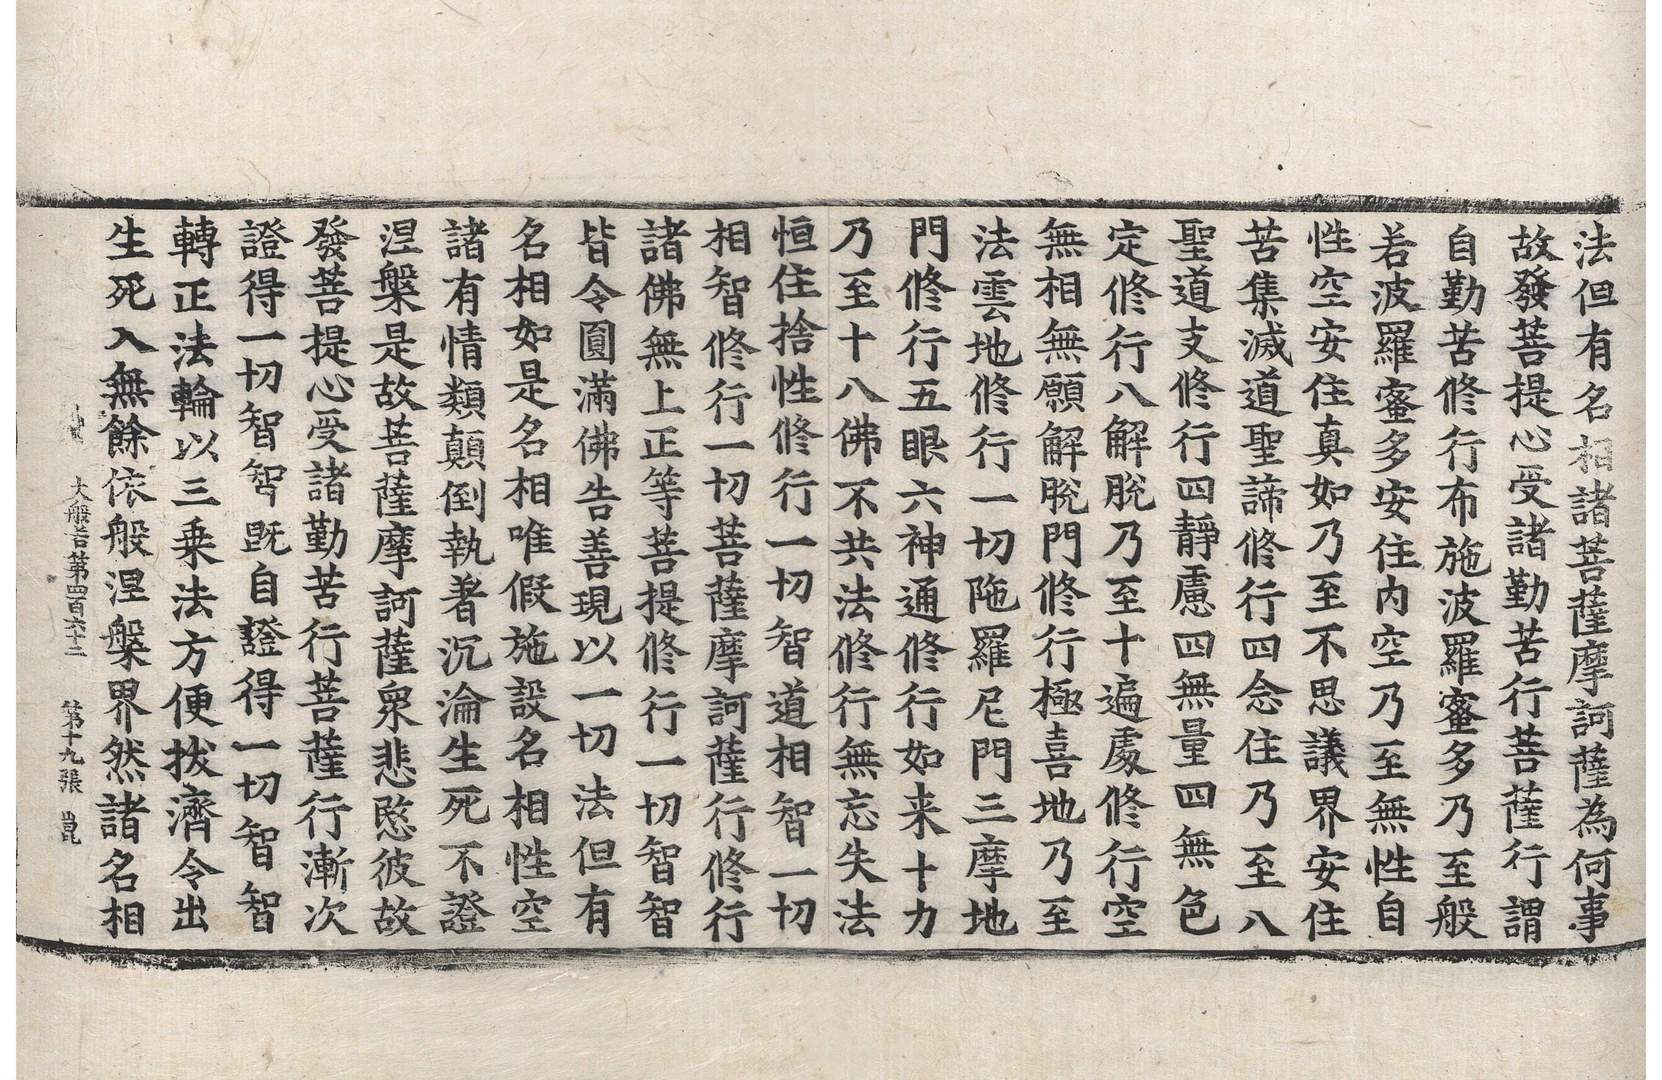 法但有名相諸菩薩摩訶薩為何事
故發菩提心受諸勤苦行菩薩行謂
自勤苦修行布施波羅蜜多乃至般
若波羅蜜多安住內空乃至無性自
性空安住真如乃至不思議界安住
苦集滅道聖諦修行四念住乃至八
聖道支修行四靜慮四無量四無色
定修行八解脫乃至十遍處修行空
無相無願解脫門修行極喜地乃至
法雲地修行一切陁羅尼門三摩地
門修行五眼六神通修行如来十力
乃至十八佛不共法修行無忘失法
恒住捨性修行一切智道相智一切
相智修行一切菩薩摩訶薩行修行
諸佛無上正等菩提修行一切智智
皆令圓滿佛告善現以一切法但有
名相如是名相唯假施設名相性空
諸有情類顛倒執著沉淪生死不證
涅槃是故菩薩摩訶薩衆悲愍彼故
發菩提心受諸勤苦行菩薩行漸次
證得一切智智既自證得一切智智
轉正法輪以三乗法方便拔濟令出
生死入無餘依般涅槃界然諸名相
大般若第四百六十二 第十九張 崑